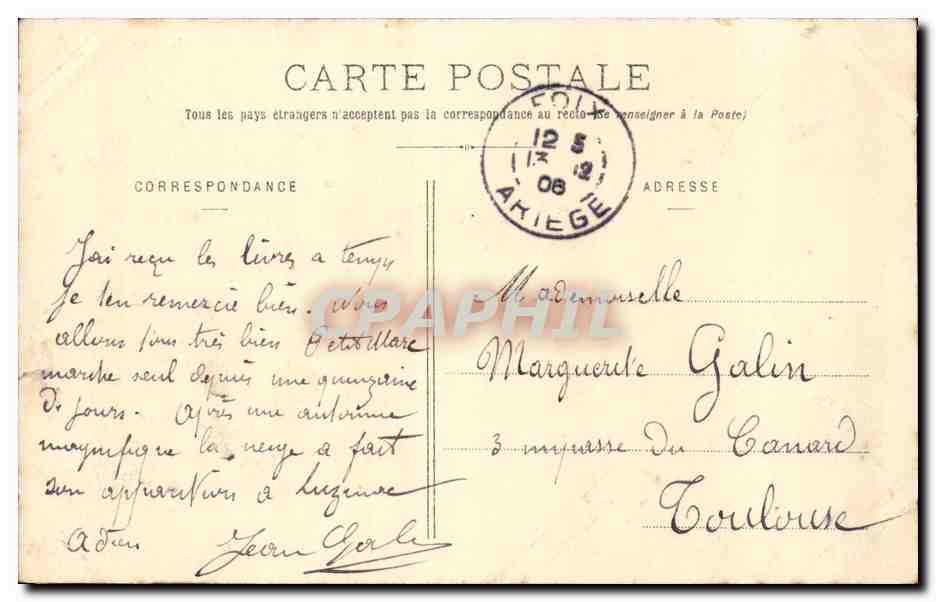 CARTE POSTALE
Tous les pays étrangers n'acceptent pas la correspondance au recto (Se renseigner à la Poste)
FOIX
12 5
12
06
ARIEGE
CORRESPONDANCE
ADRESSE
J'ai reçu les livres a temps
je t'en remercie bien. Nous
allons tous très bien Petit Marc
marche seul depuis une quinzaine
de jours. Après une automne
magnifique la neige a fait
son apparition a Luzenac
Adieu Jean Galin
Mademoiselle
Marguerite Galin
3 impasse du Canard
Toulouse
CPAPHIL